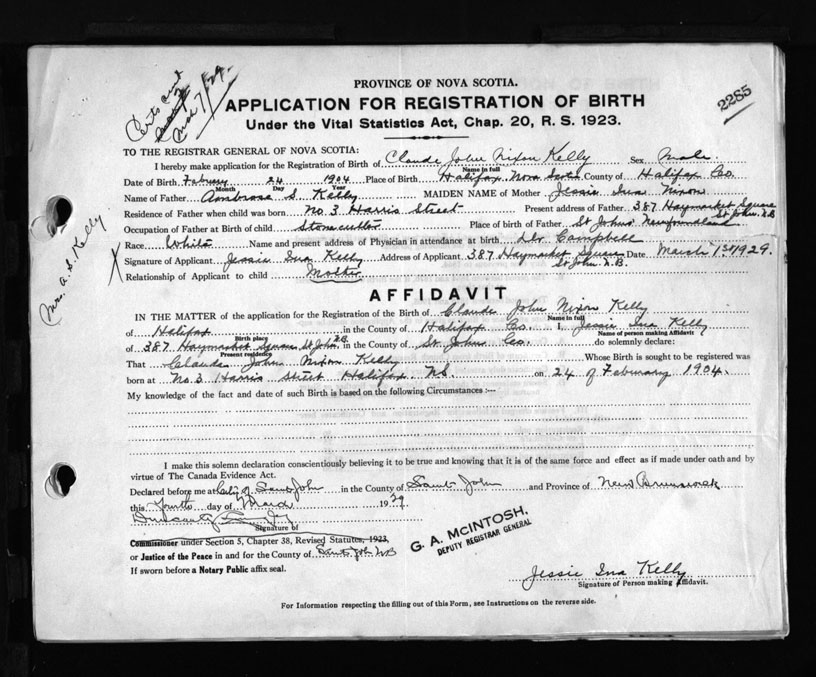 Certs out
Mar 7/29.
2285
PROVINCE OF NOVA SCOTIA.
APPLICATION FOR REGISTRATION OF BIRTH
Under the Vital Statistics Act, Chap. 20, R. S. 1923.
TO THE REGISTRAR GENERAL OF NOVA SCOTIA:
I hereby make application for the Registration of Birth of Claude John Nixon Kelly Sex Male
Name in full
Date of Birth February 24 1904 Place of Birth Halifax Nova Scotia County of Halifax Co.
Month Day Year
Name of Father Ambrose S. Kelly MAIDEN NAME of Mother Jessie Ina Nixon
Residence of Father when child was born No. 3 Harris Street Present address of Father 387 Haymarket Square
St John, N.B
Occupation of Father at Birth of child Stonecutter Place of birth of Father St Johns Newfoundland
Race White Name and present address of Physician in attendance at birth Dr. Campbell
Signature of Applicant Jessie Ina Kelly Address of Applicant 387 Haymarket Square Date March 1st 1929.
St John N.B.
Relationship of Applicant to child Mother
Mrs. A. S. Kelly
AFFIDAVIT
IN THE MATTER of the application for the Registration of the Birth of Claude John Nixon Kelly
Name in full
of Halifax in the County of Halifax Co. I, Jessie Ina Kelly
Birth place Name of person making Affidavit
of 387 Haymarket Square St John, N.B. in the County of St. Johns Co. do solemnly declare:
Present residence
That Claude John Nixon Kelly Whose Birth is sought to be registered was
born at No. 3 Harris Street Halifax. N.S. on 24 of February 1904.
My knowledge of the fact and date of such Birth is based on the following Circumstances :—
I make this solemn declaration conscientiously believing it to be true and knowing that it is of the same force and effect as if made under oath and by
virtue of The Canada Evidence Act.
Declared before me at City of Saint John in the County of Saint John and Province of New Brunswick
this Fourth day of March 1929
Signature of
Commissioner under Section 5, Chapter 38, Revised Statutes, 1923,
or Justice of the Peace in and for the County of Saint John NB
If sworn before a Notary Public affix seal.
G. A. McINTOSH,
DEPUTY REGISTRAR GENERAL
Jessie Ina Kelly
Signature of Person making Affidavit.
For Information respecting the filling out of this Form, see Instructions on the reverse side.